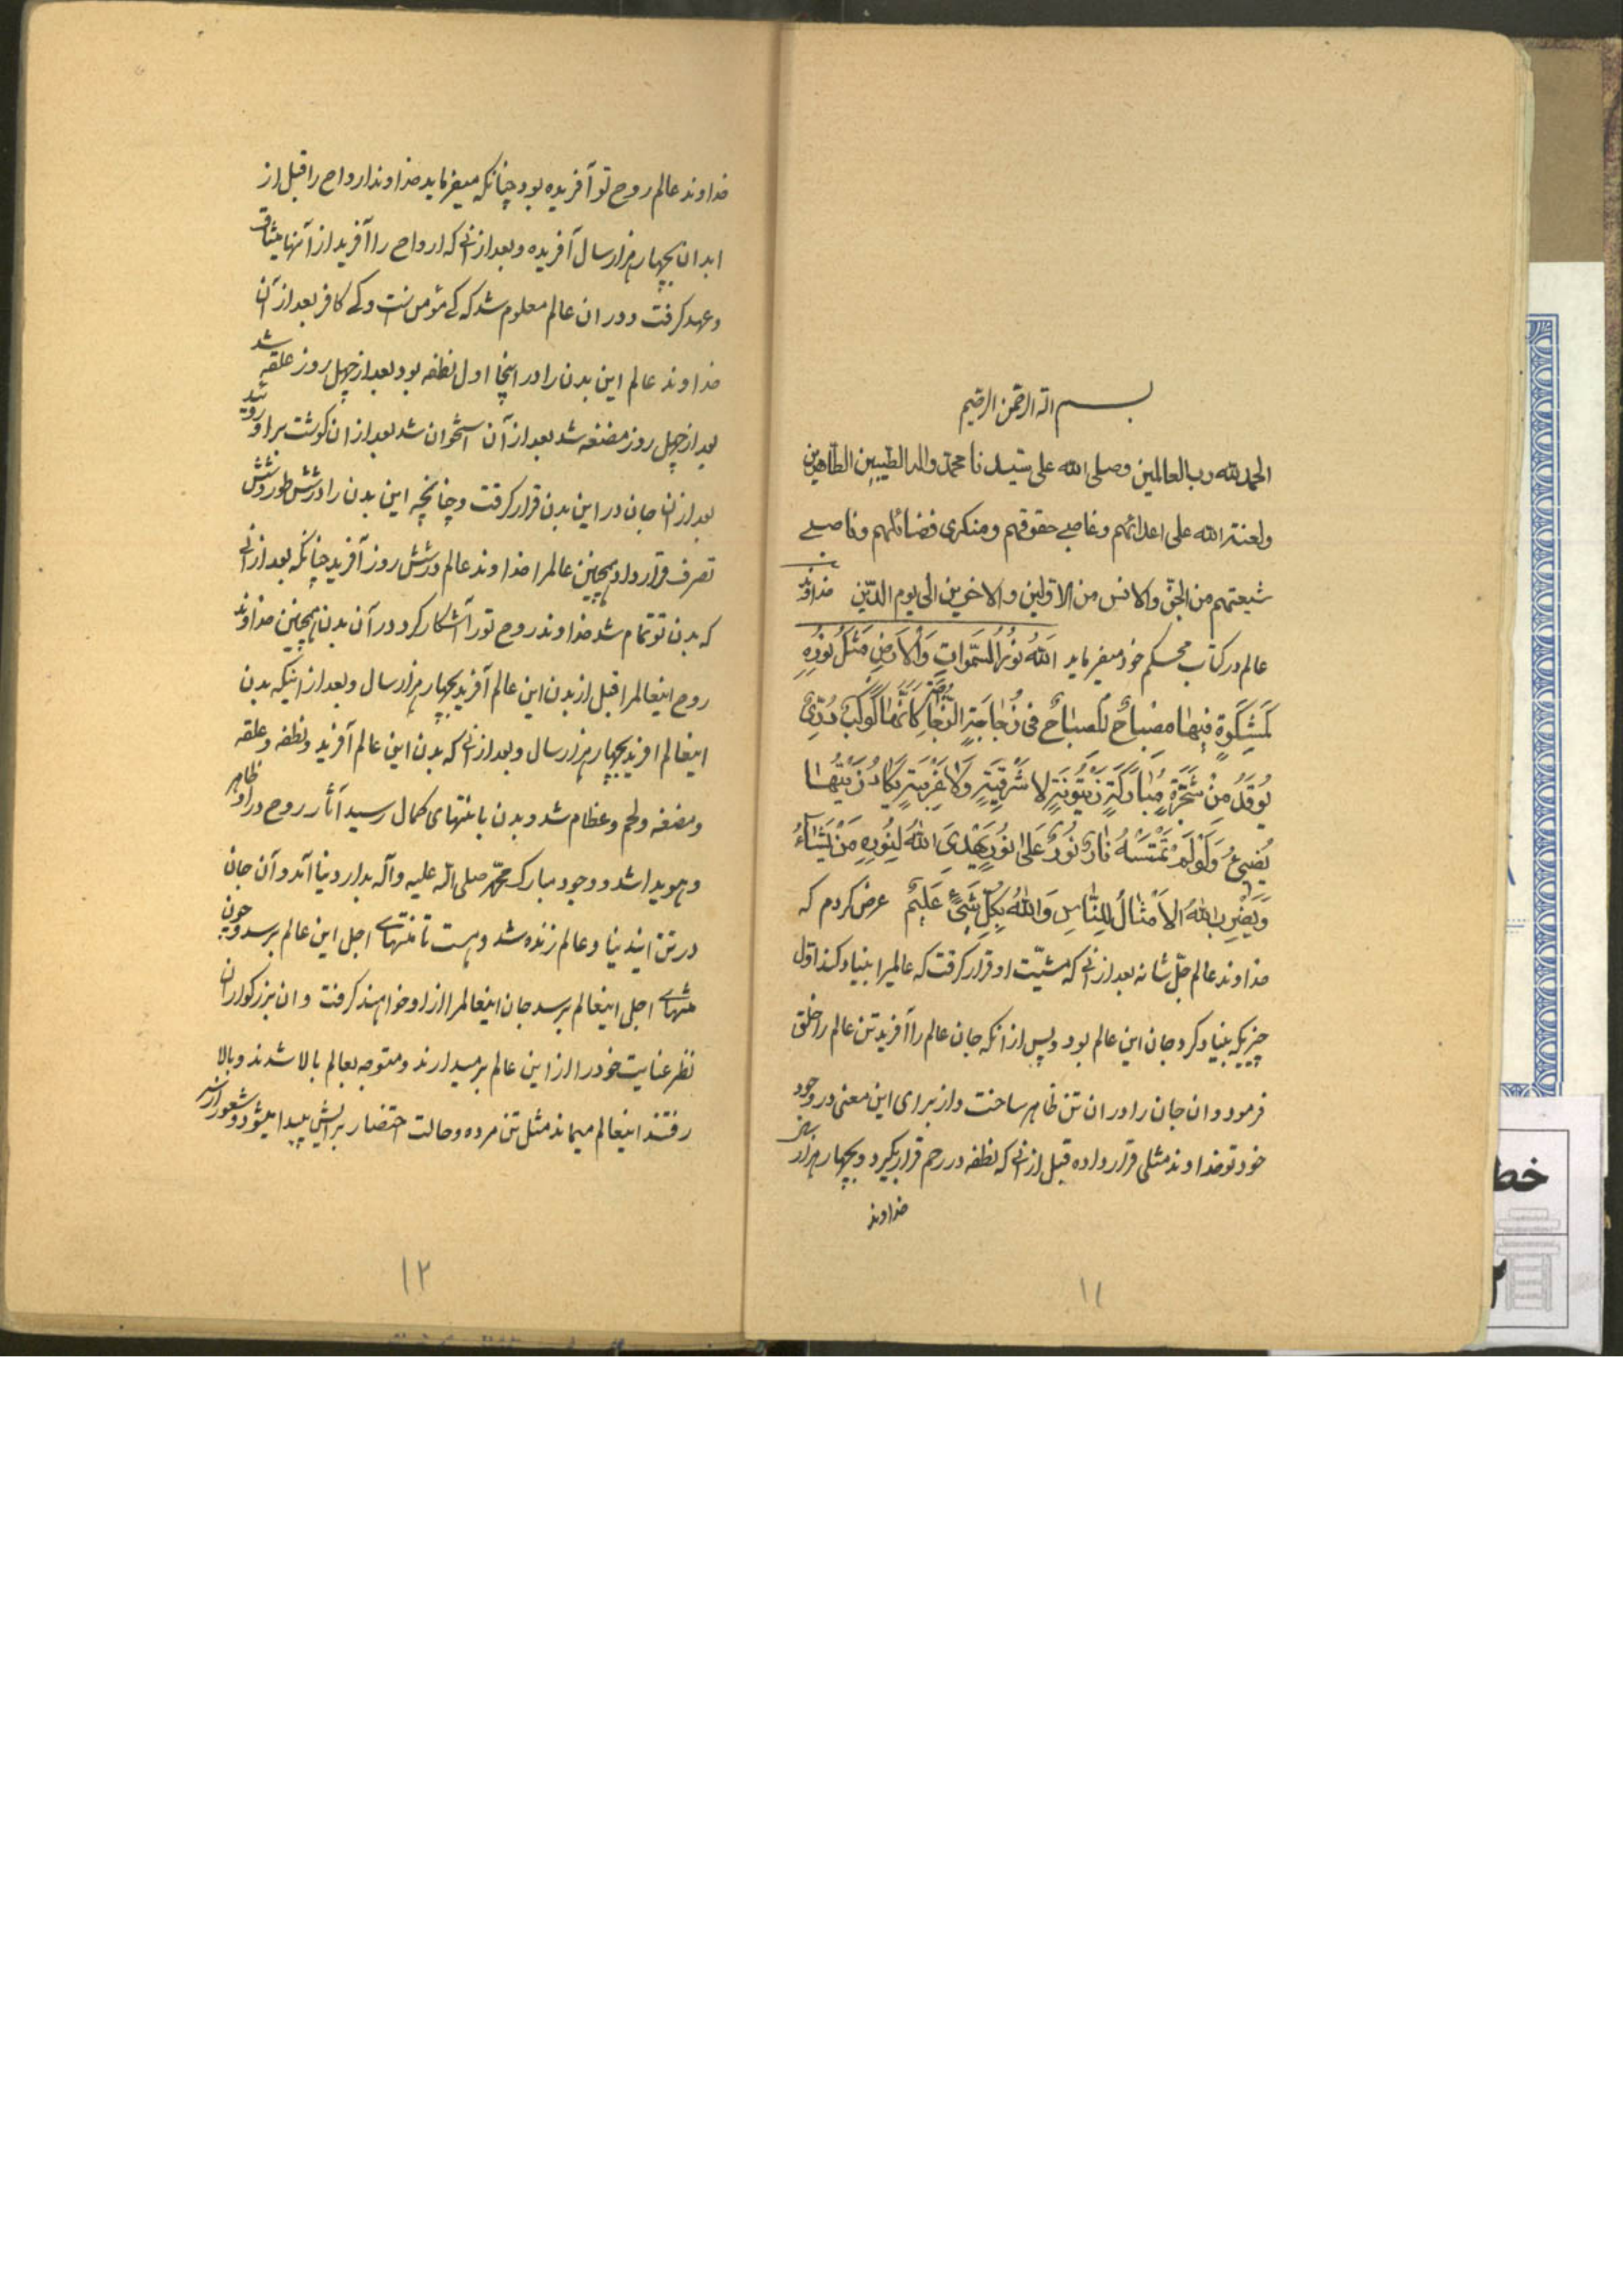 بسم الله الرحمن الرحیم
الحمد لله رب العالمین وصلی الله علی سیدنا محمد واله الطیبین الطاهرین
ولعنة الله علی اعدائهم وغاصبی حقوقهم ومنکری فضائلهم وناصبی
شیعتهم من الجن والانس من الاولین والاخرین الی یوم الدین خداوند
عالم در کتاب محکم خود میفرماید اَللّٰهُ نُورُ السَّمٰوَاتِ وَالْاَرْضِ مَثَلُ نُورِهِ
کَمِشْکٰوةٍ فِیهٰا مِصْبٰاحٌ اَلْمِصْبٰاحُ فی زُجٰاجَةٍ اَلزُّجٰاجَةُ کَاَنَّهٰا کَوْکَبٌ دُرِّیٌّ
یُوقَدُ مِنْ شَجَرَةٍ مُبٰارَکَةٍ زَیْتُونَةٍ لا شَرْقِیَّةٍ وَلا غَرْبِیَّةٍ یَکٰادُ زَیْتُهٰا
یُضِیئُ وَلَوْ لَمْ تَمْسَسْهُ نٰارٌ نُورٌ عَلیٰ نُورٍ یَهْدِی اللّٰهُ لِنُورِهِ مَنْ یَشٰآءُ
وَیَضْرِبُ اللّٰهُ الْاَمْثٰالَ لِلنّٰاسِ وَاللّٰهُ بِکُلِّ شَیْءٍ عَلِیمٌ عرض کردم که
خداوند عالم جلّ شانه بعد از آنی که مشیّت او قرار کرفت که عالمیرا بنیاد کند اوّل
چیزیکه بنیاد کرد جان این عالم بود و پس از انکه جان عالم را آفرید تن عالم را خلق
فرمود و ان جان را در ان تن ظاهر ساخت و از برای این معنی در وجود
خود تو خداوند مثلی قرار داده قبل از آنی که نطفه در رحم قرار بکیرد و بچهار هزار
خداوند
۱۱
خداوند عالم روح تو آفریده بود چنانکه میفرماید خداوند ارواح را قبل از
ابدان بچهار هزار سال آفریده و بعد از آنی که ارواح را آفرید از آنها میثاق
و عهد کرفت و در ان عالم معلوم شد که کی مؤمن است و کی کافر بعد از آن
خداوند عالم این بدن را در اینجا اول نطفه بود بعد از چهل روز علقه شد
بعد از چهل روز مضغه شد بعد از آن استخوان شد بعد از ان کوشت بر او روئید
بعد از ان جان در این بدن قرار کرفت و چنانچه این بدن را در شش طور و شش
تصرف قرار داد همچنین عالمرا خداوند عالم در شش روز آفرید چنانکه بعد از آنی
که بدن تو تمام شد خداوند روح تو را آشکار کرد در آن بدن همچنین خداوند
روح اینعالمرا قبل از بدن این عالم آفرید بچهار هزار سال و بعد از اینکه بدن
اینعالم افرید بچهار هزار سال و بعد از آنی که بدن این عالم آفرید و نطفه و علقه
و مضغه و لحم و عظام شد و بدن بانتهای کمال رسید آثار روح در او ظاهر
و هویدا شد و وجود مبارک محمّد صلی الله علیه وآله بدار دنیا آمد و آن جان
در تن ایندنیا و عالم زنده شد و هست تا منتهای اجل این عالم برسد و چون
منتهای اجل اینعالم برسد جان اینعالمرا از او خواهند کرفت و ان بزرکواران
نظر عنایت خود را از این عالم برمیدارند و متوجه بعالم بالا شدند و بالا
رفتند اینعالم میماند مثل تن مرده و حالت احتضار برایش پیدا میشود و شعور از
۱۲
خط